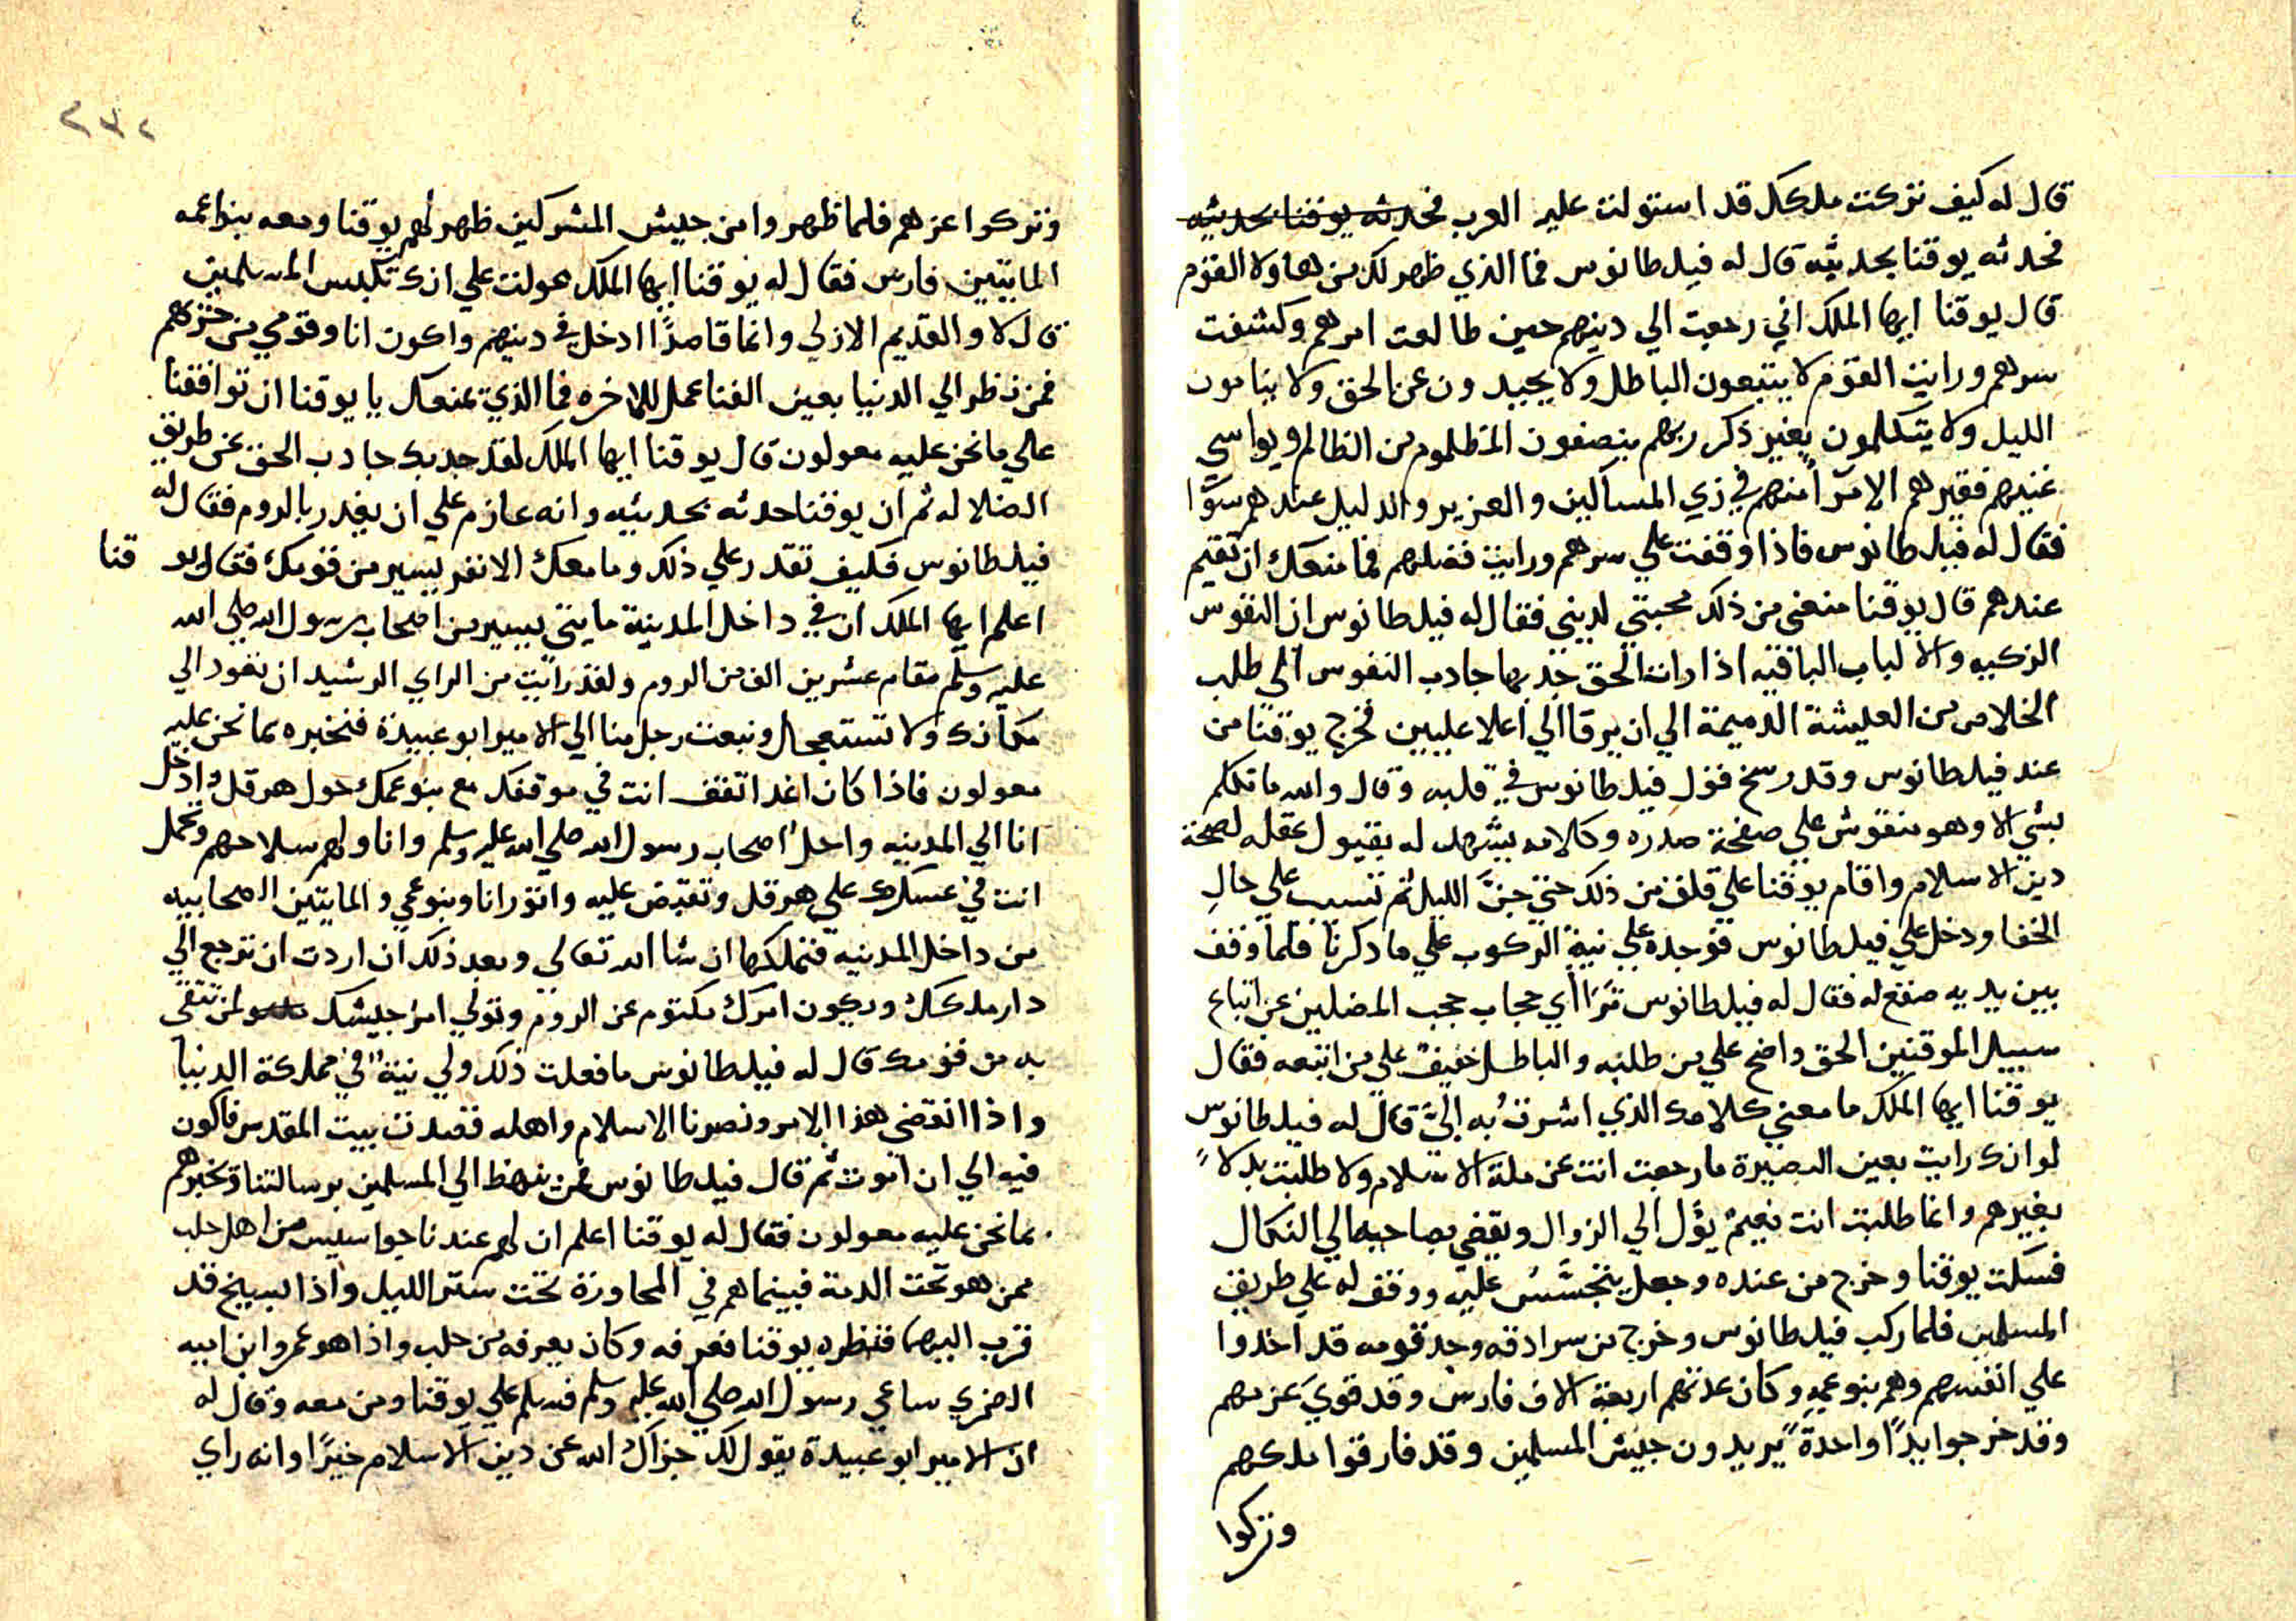 قال له كيف تركت ملكك قد استولت عليه العرب فحدثه يوقنا بحديثه
فحدثه يوقنا بحديثه قال له فيلطانوس فما الذي ظهر لك من هاولا القوم
قال يوقنا ايها الملك اني رجعت الي دينهم حين طالعت امرهم وكشفت
سرهم ورايت القوم لا يتبعون الباطل ولا يحيدون عن الحق ولا ينامون
الليل ولا يتكلمون بغير ذكر ربهم ينصفون المظلوم من الظالم ويواسي
غنيهم فقيرهم الامرا منهم في زي المساكين والعزيز والدليل عندهم سوا
فقال له فيلطانوس فاذا وقفت علي سرهم ورايت فضلهم فما منعك ان تقيم
عندهم قال يوقنا منعني من ذلك محبتي لديني فقال له فيلطانوس ان النفوس
الزكيه والالباب الباقيه اذا رات الحق جذبها جادب النفوس الي طلب
الخلاص من العيشة الدميمة الي ان يرقا الي اعلا عليين فخرج يوقنا من
عند فيلطانوس وقد رسخ قول فيلطانوس في قلبه وقال والله ما تكلم
بشي الا وهو منقوش علي صفحة صدره وكلامه يشهد له بقبول عقله لصحة
دين الاسلام واقام يوقنا علي قلق من ذلك حتي جن الليل ثم تسبب علي حال
الخفا ودخل علي فيلطانوس فوجده علي نية الركوب علي ما دكرنا فلما وقف
بين يديه صقع له فقال له فيلطانوس ترا اي حجاب حجب المضلين عن اتباع
سبيل الموقنين الحق واضح علي من طلبه والباطل خفيف علي من اتبعه فقال
يوقنا ايها الملك ما معني كلامك الذي اشرت به الي قال له فيلطانوس
لو انك رايت بعين البصيرة ما رجعت انت عن ملة الاسلام ولا طلبت بدلا
بغيرهم وانما طلبت انت نعيم يؤل الي الزوال ويفضي بصاحبه الي النكال
فسكت يوقنا وخرج من عنده وجعل يتجسس عليه ووقف له علي طريق
المسلمين فلما ركب فيلطانوس وخرج من سرادقه وجد قومه قد اخدوا
علي انفسهم وهم بنو عمه وكان عدتهم اربعة الاف فارس وقد قوي عزمهم
وقد خرجوا يدا واحدة يريدون جيش المسلمين وقد فارقوا ملكهم
وتركوا
٢٣٢
وتركوا عزهم فلما ظهروا من جيش المشركين ظهر لهم يوقنا ومعه بنواعمه
المايتين فارس فقال له يوقنا ايها الملك عولت علي انك تكبس المسلمين
قال لا والقديم الازلي وانما قاصدا ادخل في دينهم واكون انا وقومي من حزبهم
فمن نظر الي الدنيا بعين الفنا عمل للاخره فما الذي منعك يا يوقنا ان توافقنا
علي ما نحن عليه معولون قال يوقنا ايها الملك لقد جدبك جادب الحق عن طريق
الضلاله ثم ان يوقنا حدثه بحديثه وانه عازم علي ان يغدر بالروم فقال له
فيلطانوس فكيف تقدر علي ذلك وما معك الا نفر يسير من قومك فقال يوقنا
اعلم ايها الملك ان في داخل المدينة مايتي يسير من اصحاب رسول الله صلي الله
عليه وسلم مقام عشرين الف من الروم ولقد رايت من الراي الرشيد ان تعود الي
مكانك ولا تستعجل ونبعت رجل منا الي الامير ابو عبيدة فنخبره بما نحن عليه
معولون فاذا كان اغدا تقف انت في موقفك مع بنو عمك حول هرقل وادخل
انا الي المدينه واحل اصحاب رسول الله صلي الله عليه وسلم واناولهم سلاحهم وتحمل
انت في عسكرك علي هرقل وتقبض عليه واثور انا وبنو عمي والمايتين الصحابيه
من داخل المدينه فنملكها ان شا الله تعالي وبعد ذلك ان اردت ان ترجع الي
دار ملكك ويكون امرك مكتوم عن الروم وتولي امر جيشك لمن تثق
به من قومك قال له فيلطانوس ما فعلت ذلك ولي نية في مملكة الدنيا
واذا انقضي هذا الامر ونصرنا الاسلام واهله قصدت بيت المقدس فاكون
فيه الي ان اموت ثم قال فيلطانوس فمن ينهظ الي المسلمين برسالتنا ويخبرهم
بما نحن عليه معولون فقال له يوقنا اعلم ان لهم عندنا جواسيس من اهل حلب
ممن هو تحت الدمة فبينما هم في المحاورة تحت ستر الليل واذا بسيخ قد
قرب اليهما فنظره يوقنا فعرفه وكان يعرفه من حلب واذا هو عمرو ابن ابيه
الضمري ساعي رسول الله صلي الله عليه وسلم فسلم علي يوقنا ومن معه وقال له
ان الامير ابو عبيدة يقول لك جزاك الله عن دين الاسلام خيرا وانه راي